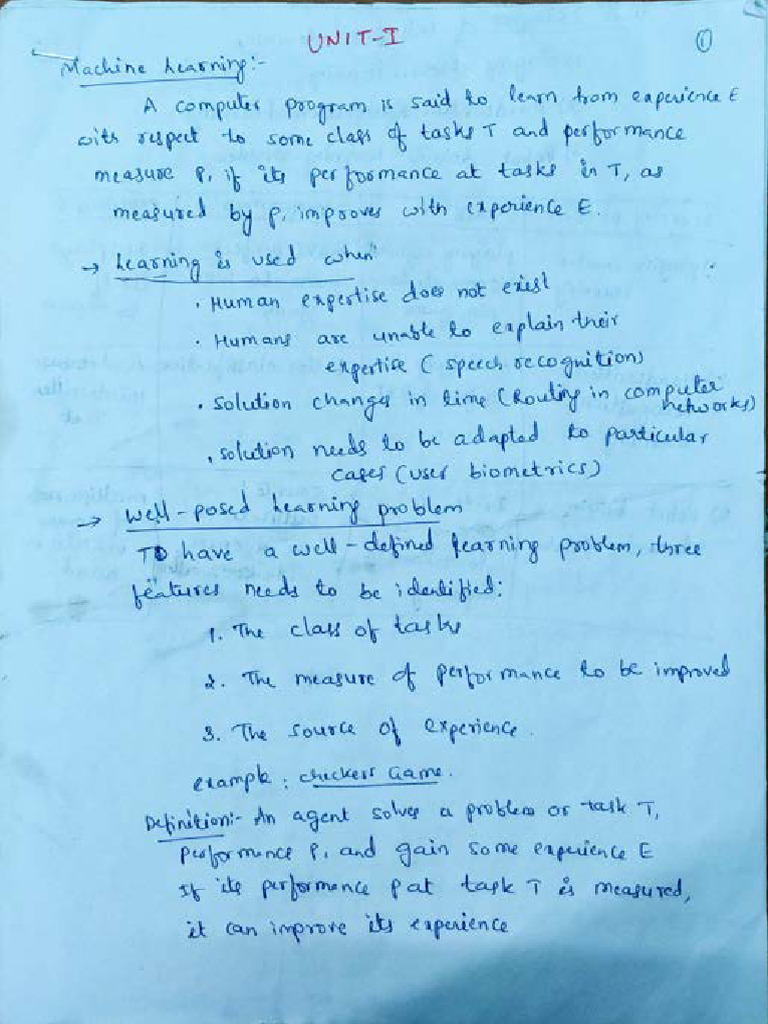 UNIT-I
①
Machine Learning:-
A computer program is said to learn from experience E
with respect to some class of tasks T and performance
measure P, if its performance at tasks in T, as
measured by P, improves with experience E.
→ Learning is used when
• Human expertise does not exist
• Humans are unable to explain their
expertise (speech recognition)
• solution changes in time (Routing in computer
networks)
• solution needs to be adapted to particular
cases (user biometrics)
→ Well-posed Learning problem
To have a well-defined learning problem, three
features needs to be identified:
1. The class of tasks
2. The measure of performance to be improved
3. The source of experience.
example: checkers Game.
Definition:- An agent solves a problem or task T,
performence P, and gain some experience E
If its performence P at task T is measured,
it can improve its experience